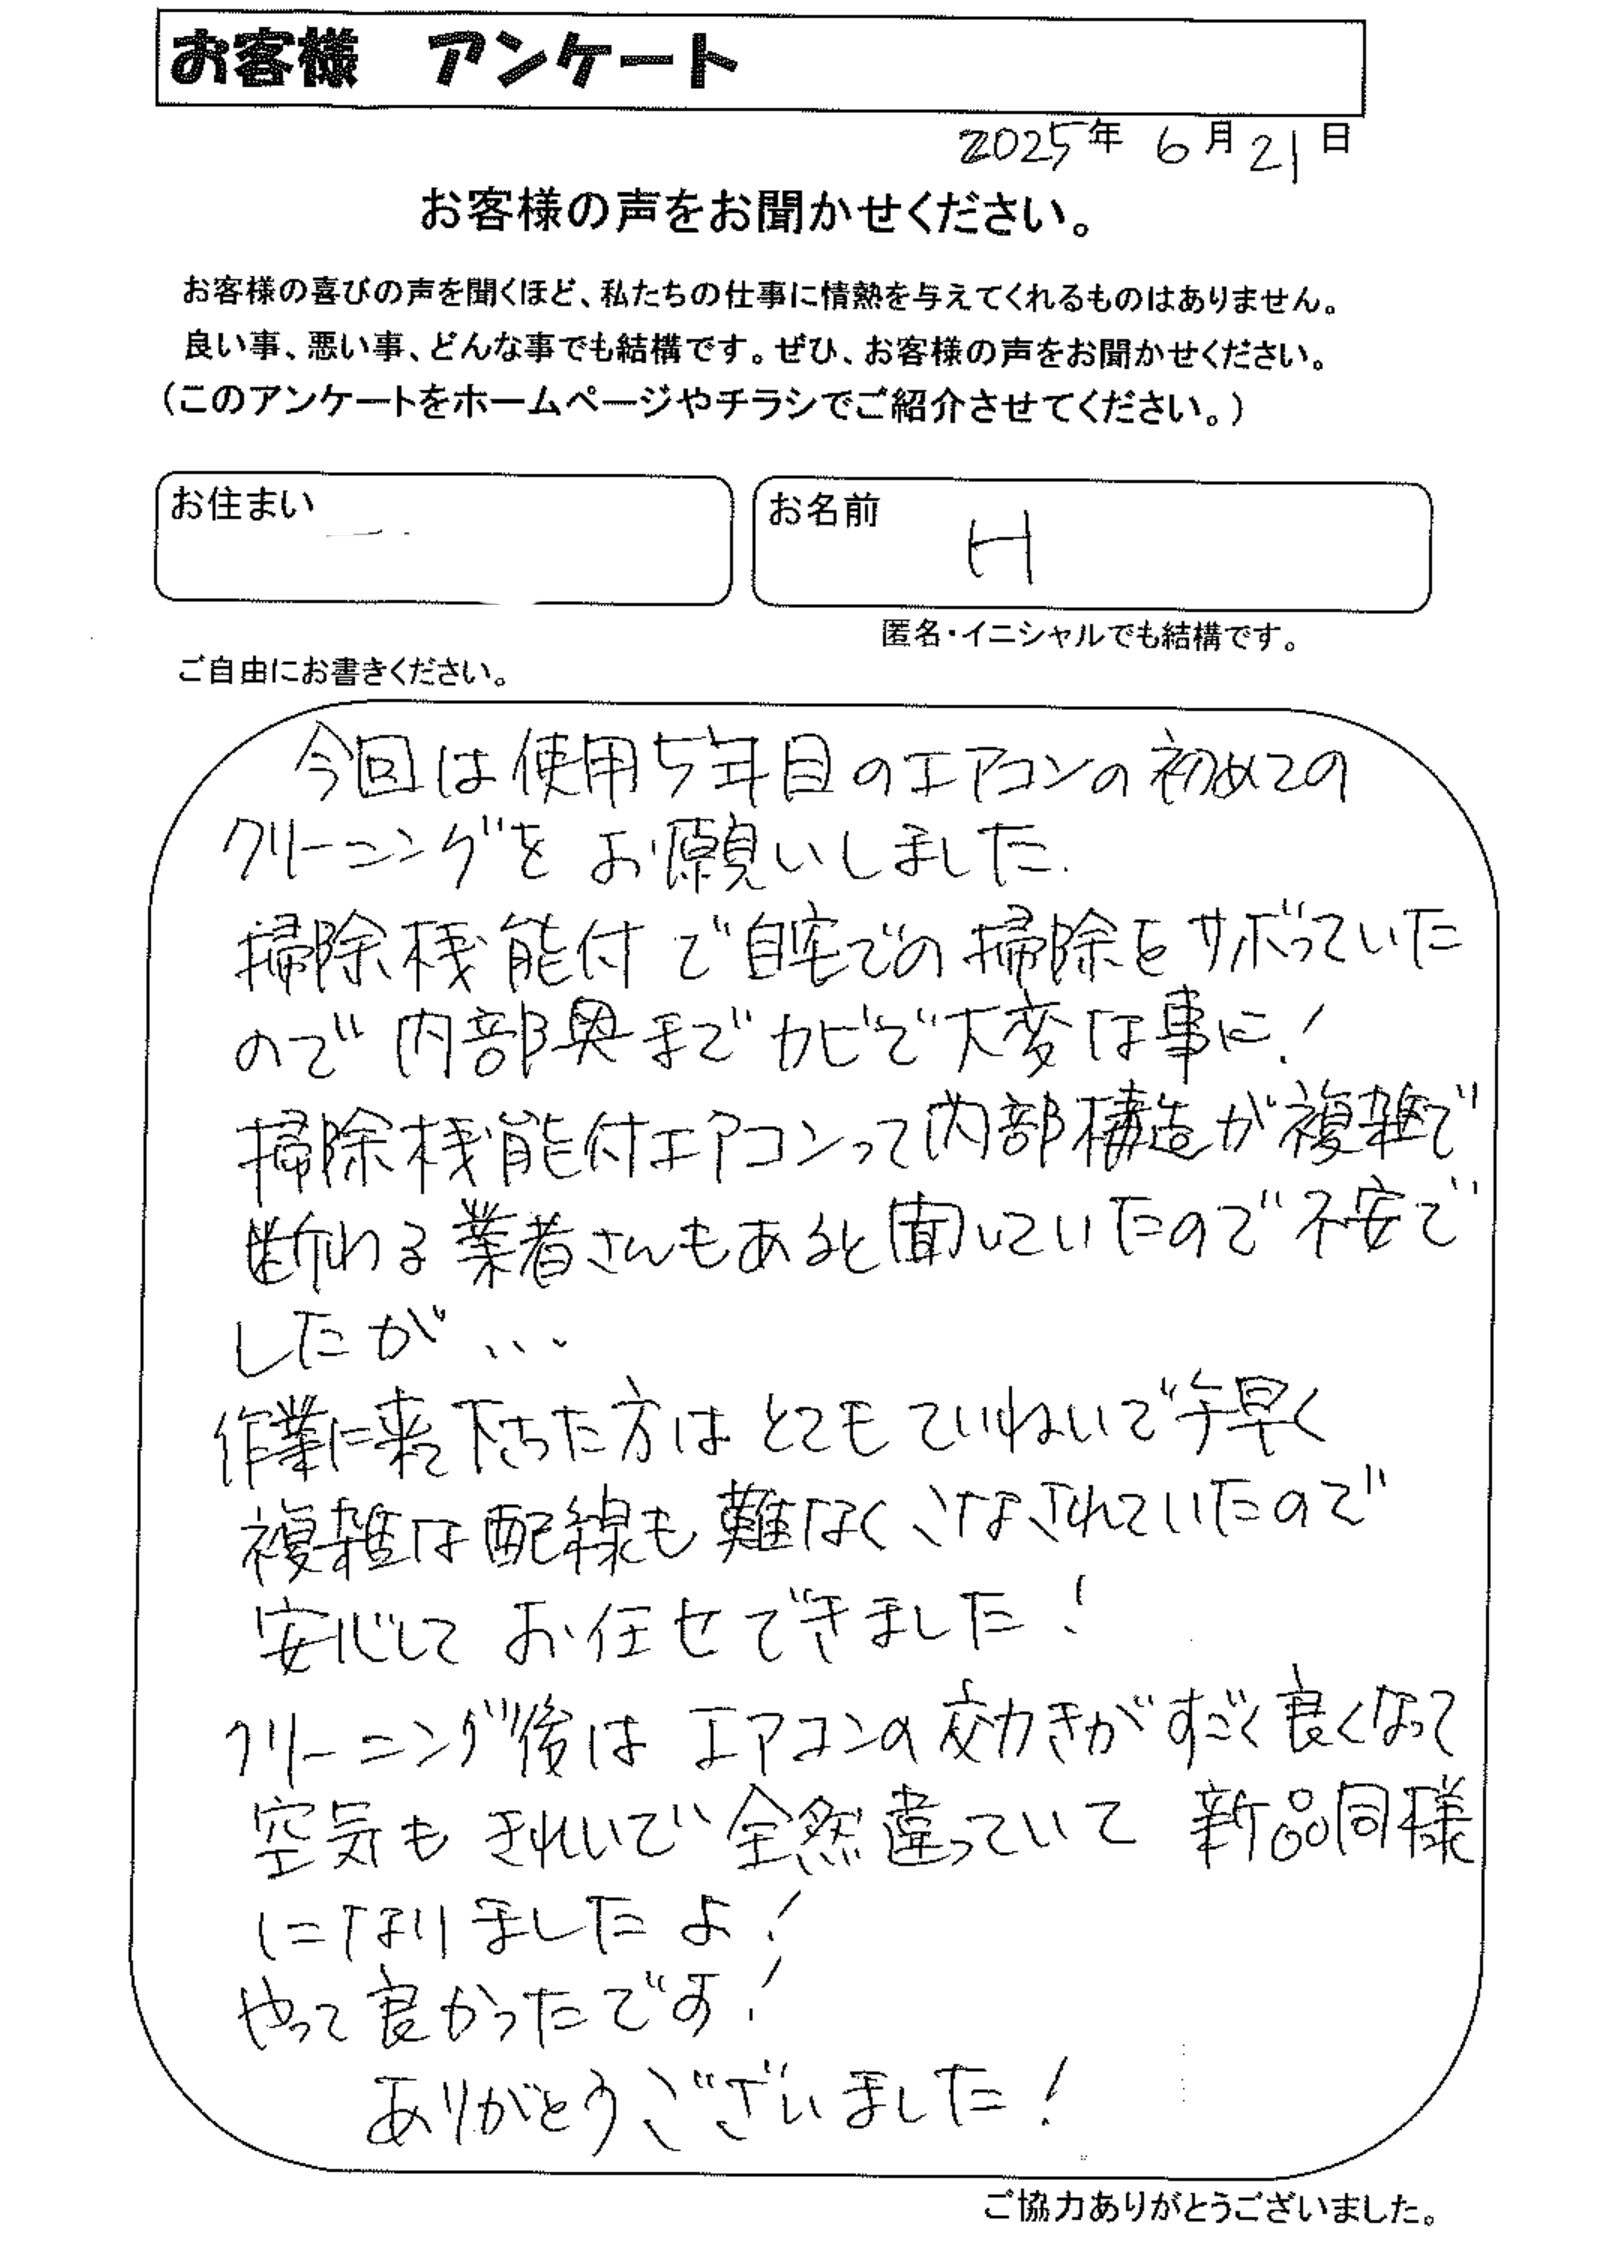 お客様 アンケート
2025年 6月21日
お客様の声をお聞かせください。
お客様の喜びの声を聞くほど、私たちの仕事に情熱を与えてくれるものはありません。
良い事、悪い事、どんな事でも結構です。ぜひ、お客様の声をお聞かせください。
（このアンケートをホームページやチラシでご紹介させてください。）
お住まい
お名前 H
匿名・イニシャルでも結構です。
ご自由にお書きください。
今回は使用5年目のエアコンの初めての
クリーニングをお願いしました.
掃除機能付で自宅での掃除をサボっていた
ので内部奥までカビで大変な事に!
掃除機能付エアコンって内部構造が複雑で
断わる業者さんもあると聞いていたので不安で
したが...
作業に来て下さった方はとてもていねいで手早く
複雑な配線も難なくこなされていたので
安心してお任せできました!
クリーニング後はエアコンの効きがすごく良くなって
空気もきれいで全然違っていて 新品同様
になりましたよ!
やって良かったです!
ありがとうございました!
ご協力ありがとうございました。